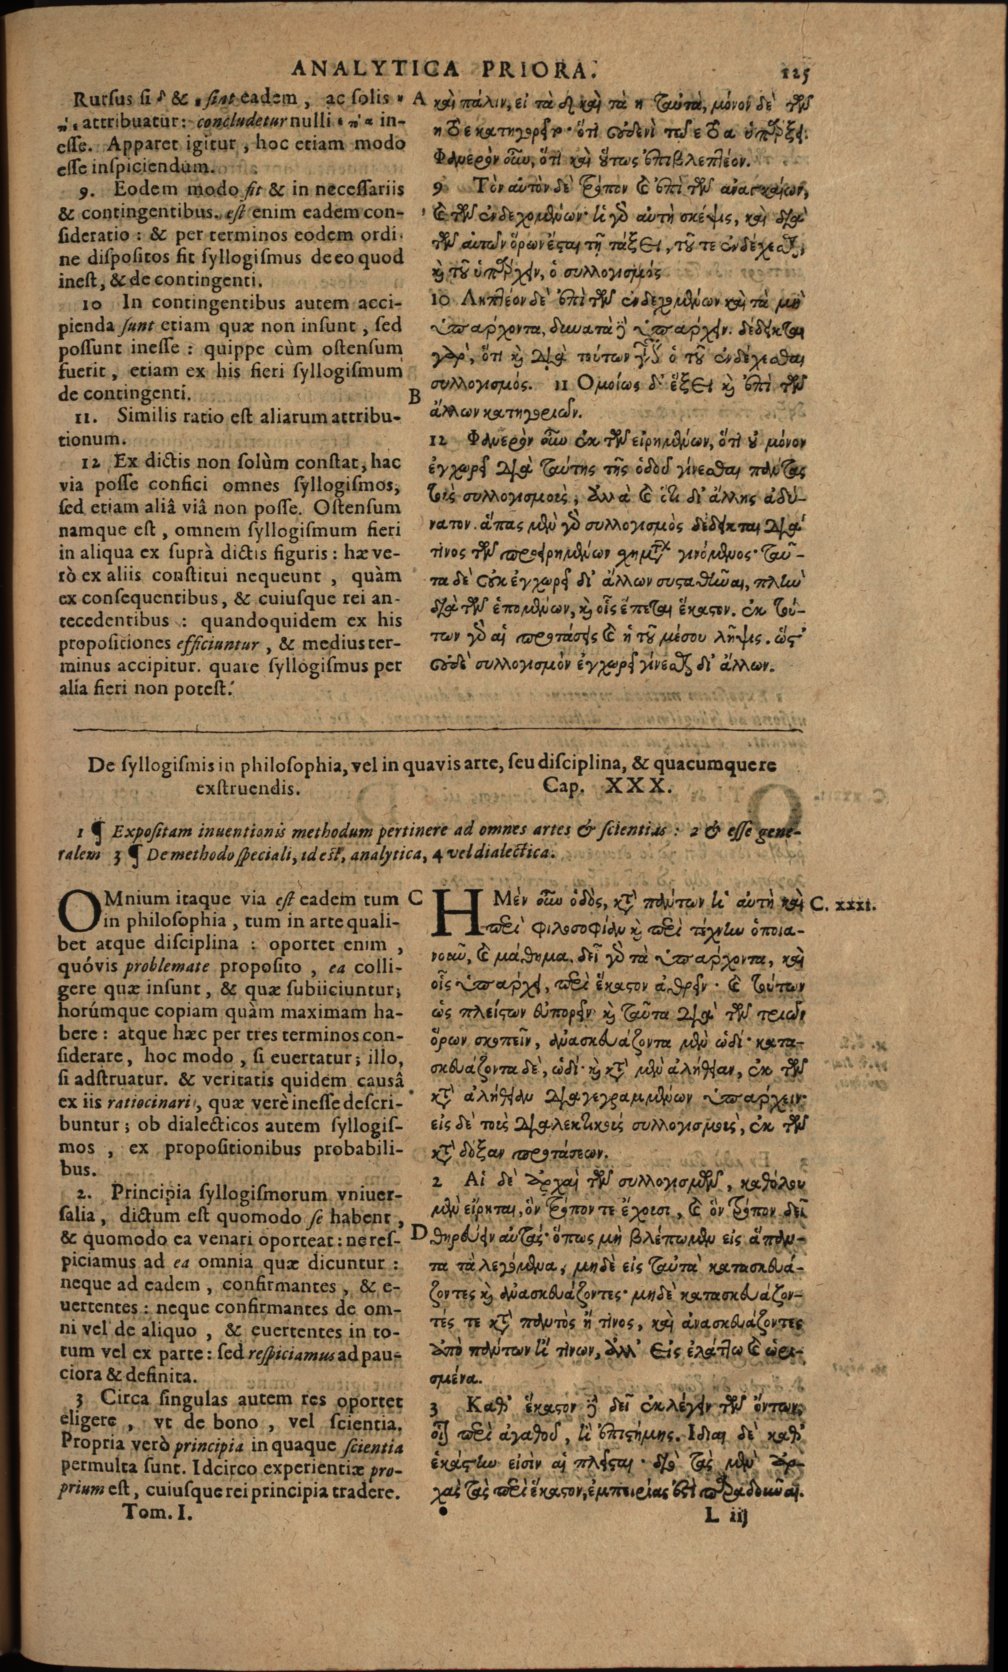 ANALYTICA PRIORA. 125
Rursus si δ & η sint eadem, ac solis η
attribuatur: concludetur nulli in-
esse. Apparet igitur, hoc etiam modo
esse inspiciendum.
9. Eodem modo fit & in necessariis
& contingentibus. est enim eadem con-
sideratio: & per terminos eodem ordi-
ne dispositos fit syllogismus de eo quod
inest, & de contingenti.
10 In contingentibus autem acci-
pienda sunt etiam quæ non insunt, sed
possunt inesse: quippe cùm ostensum
fuerit, etiam ex his fieri syllogismum
de contingenti.
11. Similis ratio est aliarum attribu-
tionum.
12 Ex dictis non solùm constat, hac
via posse confici omnes syllogismos,
sed etiam aliâ viâ non posse. Ostensum
namque est, omnem syllogismum fieri
in aliqua ex suprà dictis figuris: hæ ve-
rò ex aliis constitui nequeunt, quàm
ex consequentibus, & cuiusque rei an-
tecedentibus: quandoquidem ex his
propositiones efficiuntur, & medius ter-
minus accipitur. quare syllogismus per
alia fieri non potest.
A
B
καὶ πάλιν, εἰ τὰ δ καὶ τὰ η ταὐτὰ, μόνον δὲ τῶν
η τὸ ε κατηγορεῖτο· ὅτι οὐδενὶ τῷ ε τὸ α ὑπάρξει.
Φανερὸν οὖν, ὅτι καὶ οὕτως ἐπιβλεπτέον.
9 Τὸν αὐτὸν δὲ τρόπον καὶ ἐπὶ τῶν ἀναγκαίων,
καὶ τῶν ἐνδεχομένων· ἡ γὸ αὐτὴ σκέψις, καὶ διὰ
τῶν αὐτῶν ὅρων ἔςαι τῇ τάξει, τοῦ τε ἐνδέχεσθαι,
καὶ τοῦ ὑπάρχειν, ὁ συλλογισμός.
10 Ληπτέον δὲ ἐπὶ τῶν ἐνδεχομένων καὶ τὰ μὴ
ὑπάρχοντα, δυνατὰ δὲ ὑπάρχειν. δέδεικται
γὰρ, ὅτι καὶ διὰ τούτων γίνεται ὁ τοῦ ἐνδέχεσθαι
συλλογισμός. 11 Ὁμοίως δ' ἕξει καὶ ἐπὶ τῶν
ἄλλων κατηγοριῶν.
12 Φανερὸν οὖν ἐκ τῶν εἰρημένων, ὅτι οὐ μόνον
ἐγχωρεῖ διὰ ταύτης τῆς ὁδοῦ γίνεσθαι πάντας
τοὺς συλλογισμοὺς, ἀλλὰ καὶ ὅτι δι' ἄλλης ἀδύ-
νατον. ἅπας μὲν γὸ συλλογισμὸς δέδεικται διὰ
τίνος τῶν προειρημένων σχημάτων γινόμενος· ταῦ-
τα δὲ οὐκ ἐγχωρεῖ δι' ἄλλων συςαθῆναι, πλὴν
διὰ τῶν ἑπομένων, καὶ οἷς ἕπεται ἕκαςον. ἐκ τού-
των γὸ αἱ προτάσεις καὶ ἡ τοῦ μέσου λῆψις. ὥς'
οὐδὲ συλλογισμὸν ἐγχωρεῖ γίνεσθαι δι' ἄλλων.
De syllogismis in philosophia, vel in quavis arte, seu disciplina, & quacumque re
exstruendis. Cap. XXX.
1 ¶ Expositam inuentionis methodum pertinere ad omnes artes & scientias: 2 & esse gene-
ralem 3 ¶ De methodo speciali, id est, analytica, 4 vel dialectica.
OMnium itaque via est eadem tum
in philosophia, tum in arte quali-
bet atque disciplina: oportet enim,
quóvis problemate proposito, ea colli-
gere quæ insunt, & quæ subiiciuntur;
horúmque copiam quàm maximam ha-
bere: atque hæc per tres terminos con-
siderare, hoc modo, si euertatur; illo,
si adstruatur. & veritatis quidem causâ
ex iis ratiocinari, quæ verè inesse descri-
buntur; ob dialecticos autem syllogis-
mos, ex propositionibus probabili-
bus.
2. Principia syllogismorum vniuer-
salia, dictum est quomodo se habent,
& quomodo ea venari oporteat: ne res-
piciamus ad ea omnia quæ dicuntur:
neque ad eadem, confirmantes, & e-
uertentes: neque confirmantes de om-
ni vel de aliquo, & euertentes in to-
tum vel ex parte: sed respiciamus ad pau-
ciora & definita.
3 Circa singulas autem res oportet
eligere, vt de bono, vel scientia.
Propria verò principia in quaque scientia
permulta sunt. Idcirco experientiæ pro-
prium est, cuiusque rei principia tradere.
Tom. I.
C
D
Η Μὲν οὖν ὁδὸς, κατὰ πάντων ἡ αὐτὴ καὶ
περὶ φιλοσοφίαν καὶ περὶ τέχνην ὁποια-
νοῦν, καὶ μάθημα. δεῖ γὸ τὰ ὑπάρχοντα, καὶ
οἷς ὑπάρχει, περὶ ἕκαςον ἀθρεῖν· καὶ τούτων
ὡς πλείςων εὐπορεῖν· καὶ ταῦτα διὰ τῶν τριῶν
ὅρων σκοπεῖν, ἀνασκευάζοντα μὲν ὡδί· κατα-
σκευάζοντα δὲ, ὡδί· καὶ κατὰ μὲν ἀλήθειαν, ἐκ τῶν
κατ' ἀλήθειαν διαγεγραμμένων ὑπάρχειν·
εἰς δὲ τοὺς διαλεκτικοὺς συλλογισμοὺς, ἐκ τῶν
κατὰ δόξαν προτάσεων.
2 Αἱ δὲ ἀρχαὶ τῶν συλλογισμῶν, καθόλου
μὲν εἴρηται, ὃν τρόπον τε ἔχουσι, καὶ ὃν τρόπον δεῖ
θηρεύειν αὐτάς· ὅπως μὴ βλέπωμεν εἰς ἅπαν-
τα τὰ λεγόμενα, μηδὲ εἰς ταὐτὰ κατασκευά-
ζοντες καὶ ἀνασκευάζοντες· μηδὲ κατασκευάζον-
τές τε κατὰ παντὸς ἢ τινος, καὶ ἀνασκευάζοντες
ἀπὸ πάντων ἢ τινων, ἀλλ' εἰς ἐλάττω καὶ ὡρι-
σμένα.
3 Καθ' ἕκαςον δὲ δεῖ ἐκλέγειν τῶν ὄντων,
οἷον περὶ ἀγαθοῦ, ἢ ἐπιςήμης. Ἴδιαι δὲ καθ'
ἑκάςην εἰσὶν αἱ πλεῖςαι· διὸ τὰς μὲν ἀρ-
χὰς τὰς περὶ ἕκαςον, ἐμπειρίας ἐςὶ παραδοῦναι.
C. xxxi.
L iij